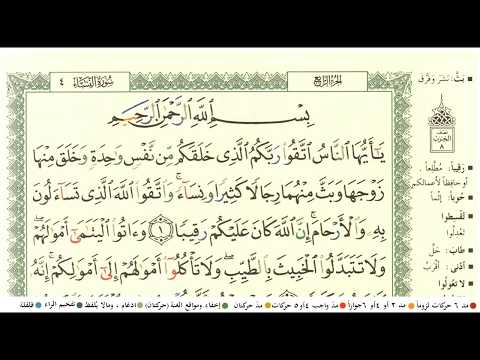 سُورَةُ النِّسَاءِ ٤
الجزء الرابع
بِسْمِ اللَّهِ الرَّحْمَٰنِ الرَّحِيمِ
يَٰٓأَيُّهَا النَّاسُ اتَّقُوا رَبَّكُمُ الَّذِي خَلَقَكُم مِّن نَّفْسٍ وَٰحِدَةٍ وَخَلَقَ مِنْهَا
زَوْجَهَا وَبَثَّ مِنْهُمَا رِجَالًا كَثِيرًا وَنِسَآءً ۚ وَاتَّقُوا اللَّهَ الَّذِي تَسَآءَلُونَ
بِهِۦ وَالْأَرْحَامَ ۚ إِنَّ اللَّهَ كَانَ عَلَيْكُمْ رَقِيبًا ١ وَءَاتُوا الْيَتَٰمَىٰٓ أَمْوَٰلَهُمْ ۖ
وَلَا تَتَبَدَّلُوا الْخَبِيثَ بِالطَّيِّبِ ۖ وَلَا تَأْكُلُوٓا أَمْوَٰلَهُمْ إِلَىٰٓ أَمْوَٰلِكُمْ ۚ إِنَّهُۥ
بَثَّ: نشر وفرّق
نصف
الحزب
٨
رقيباً: مطّلعاً
أو حافظاً لأعمالكم
حوباً: إثماً
تقسطوا
تعدلوا
طاب: حلّ
أدنى: أقرب
ألا تعولوا
مد ٦ حركات لزوماً مد ٢ أو ٤ أو ٦ جوازاً مد واجب ٤ أو ٥ حركات مد حركتان إخفاء، ومواقع الغنة (حركتان) ادغام، ومالا يُلفظ تفخيم الراء قلقلة